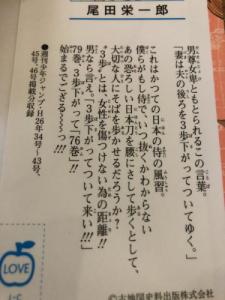 尾田栄一郎
男尊女卑ともとられるこの言葉。
「妻は夫の後ろを3歩下がってついてゆく。」
これはかつての日本の侍の風習。
僕らがもし侍で、いつ抜くかわからない
あの恐ろしい日本刀を腰に差して歩くとして、
大切な人にそばを歩かせるだろうか?
"3歩"とは、女性を傷つけない為の距離!!
男なら言え。「3歩下がってついて来い!!!」
79巻、3歩下がって「76巻」!!
始まるでござる〜〜〜っ!!!
●週刊少年ジャンプ・H26年34号〜43号、
45号、46号掲載分収録
LOVE